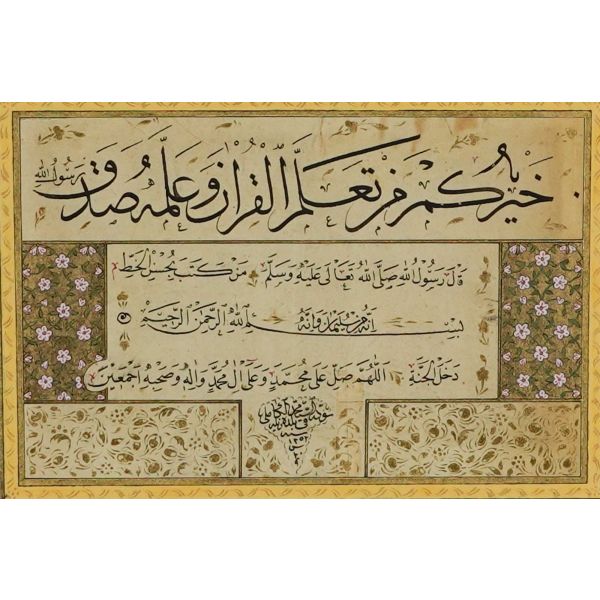 خيركم من تعلم القرآن وعلمه صدق رسول الله
قال رسول الله صلى الله تعالى عليه وسلم من كتب بحسن الخط
بسم الله الرحمن الرحيم إنه من سليمان وإنه
دخل الجنة اللهم صل على محمد وعلى آل محمد وآله وصحبه أجمعين
١٢٥٢